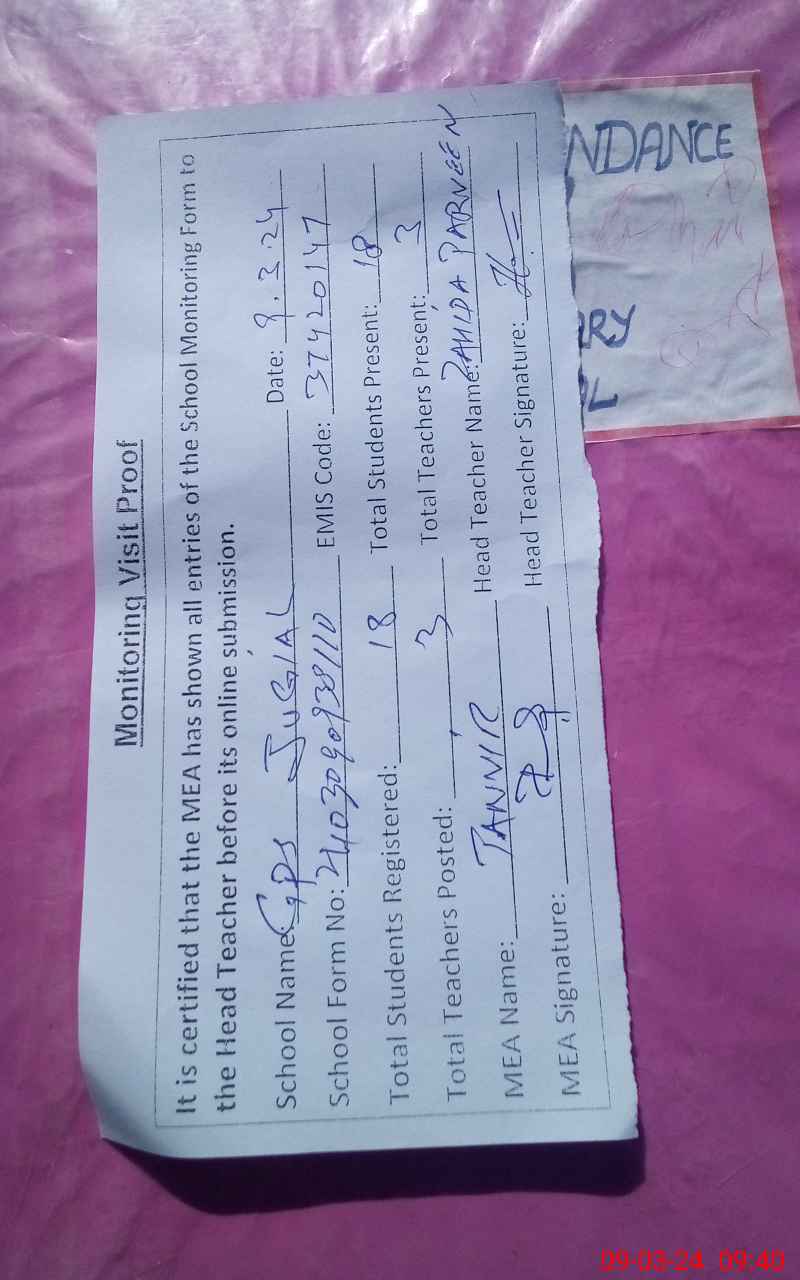 Monitoring Visit Proof
It is certified that the MEA has shown all entries of the School Monitoring Form to
the Head Teacher before its online submission.
School Name: GPS JUGIAL Date: 9.3.24
School Form No: EMIS Code: 37420147
Total Students Registered: 18 Total Students Present: 18
Total Teachers Posted: 3 Total Teachers Present: 3
MEA Name: TANVIR Head Teacher Name: ZAHIDA PARVEEN
MEA Signature: Head Teacher Signature:
NDANCE
RY
L
09-03-24 09:40